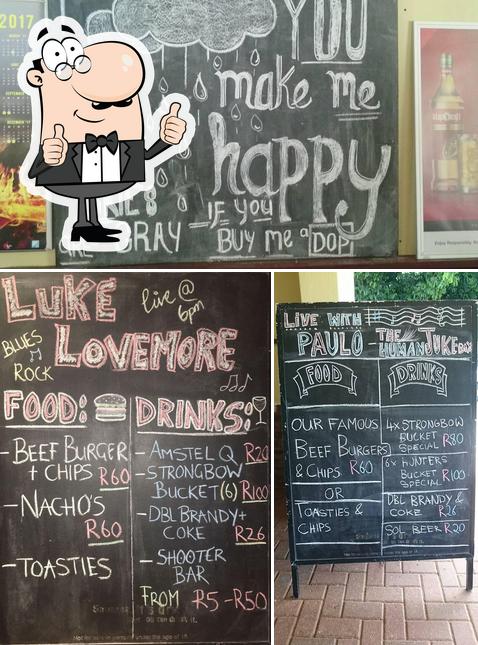 2017
YOU
make me
happy
GRAY
IF YOU
BUY me a DOP!
Enjoy Responsibly.
LUKE
live @
6pm
LOVEMORE
BLUES
ROCK
FOOD:
DRINKS:
- BEEF BURGER
+ CHIPS R60
- NACHO'S
R60
- TOASTIES
- AMSTEL Q R20
- STRONGBOW
BUCKET (6) R100
- DBL BRANDY +
COKE R26
- SHOOTER
BAR
FROM R5 - R50
LIVE WITH
PAULO - THE
HUMAN JUKEBOX
FOOD
DRINKS
OUR FAMOUS
BEEF BURGERS
& CHIPS R60
OR
TOASTIES &
CHIPS
4x STRONGBOW
BUCKET
SPECIAL R80
6x HUNTERS
BUCKET
SPECIAL R100
DBL BRANDY &
COKE R26
SOL BEER R20